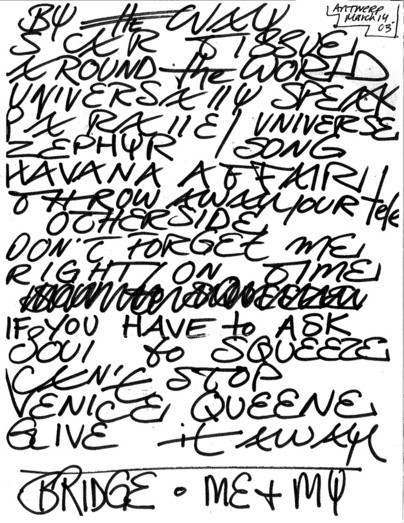 ANTWERP
MARCH 14
03'
BY the WAY
SCAR TISSUE
AROUND the WORLD
UNIVERSAllY SPEAK
PARAllEl UNIVERSE
ZEPHYR SONG
HAVANA AFFAIR
THROW AWAY YOUR tele
OTHERSIDE
DON'T FORGET ME
RIGHT ON TIME
IF YOU HAVE to ASK
SOUl to SQUEEZE
CAN'T STOP
VENICE QUEENE
GIVE it AWAY
BRIDGE • ME + MY